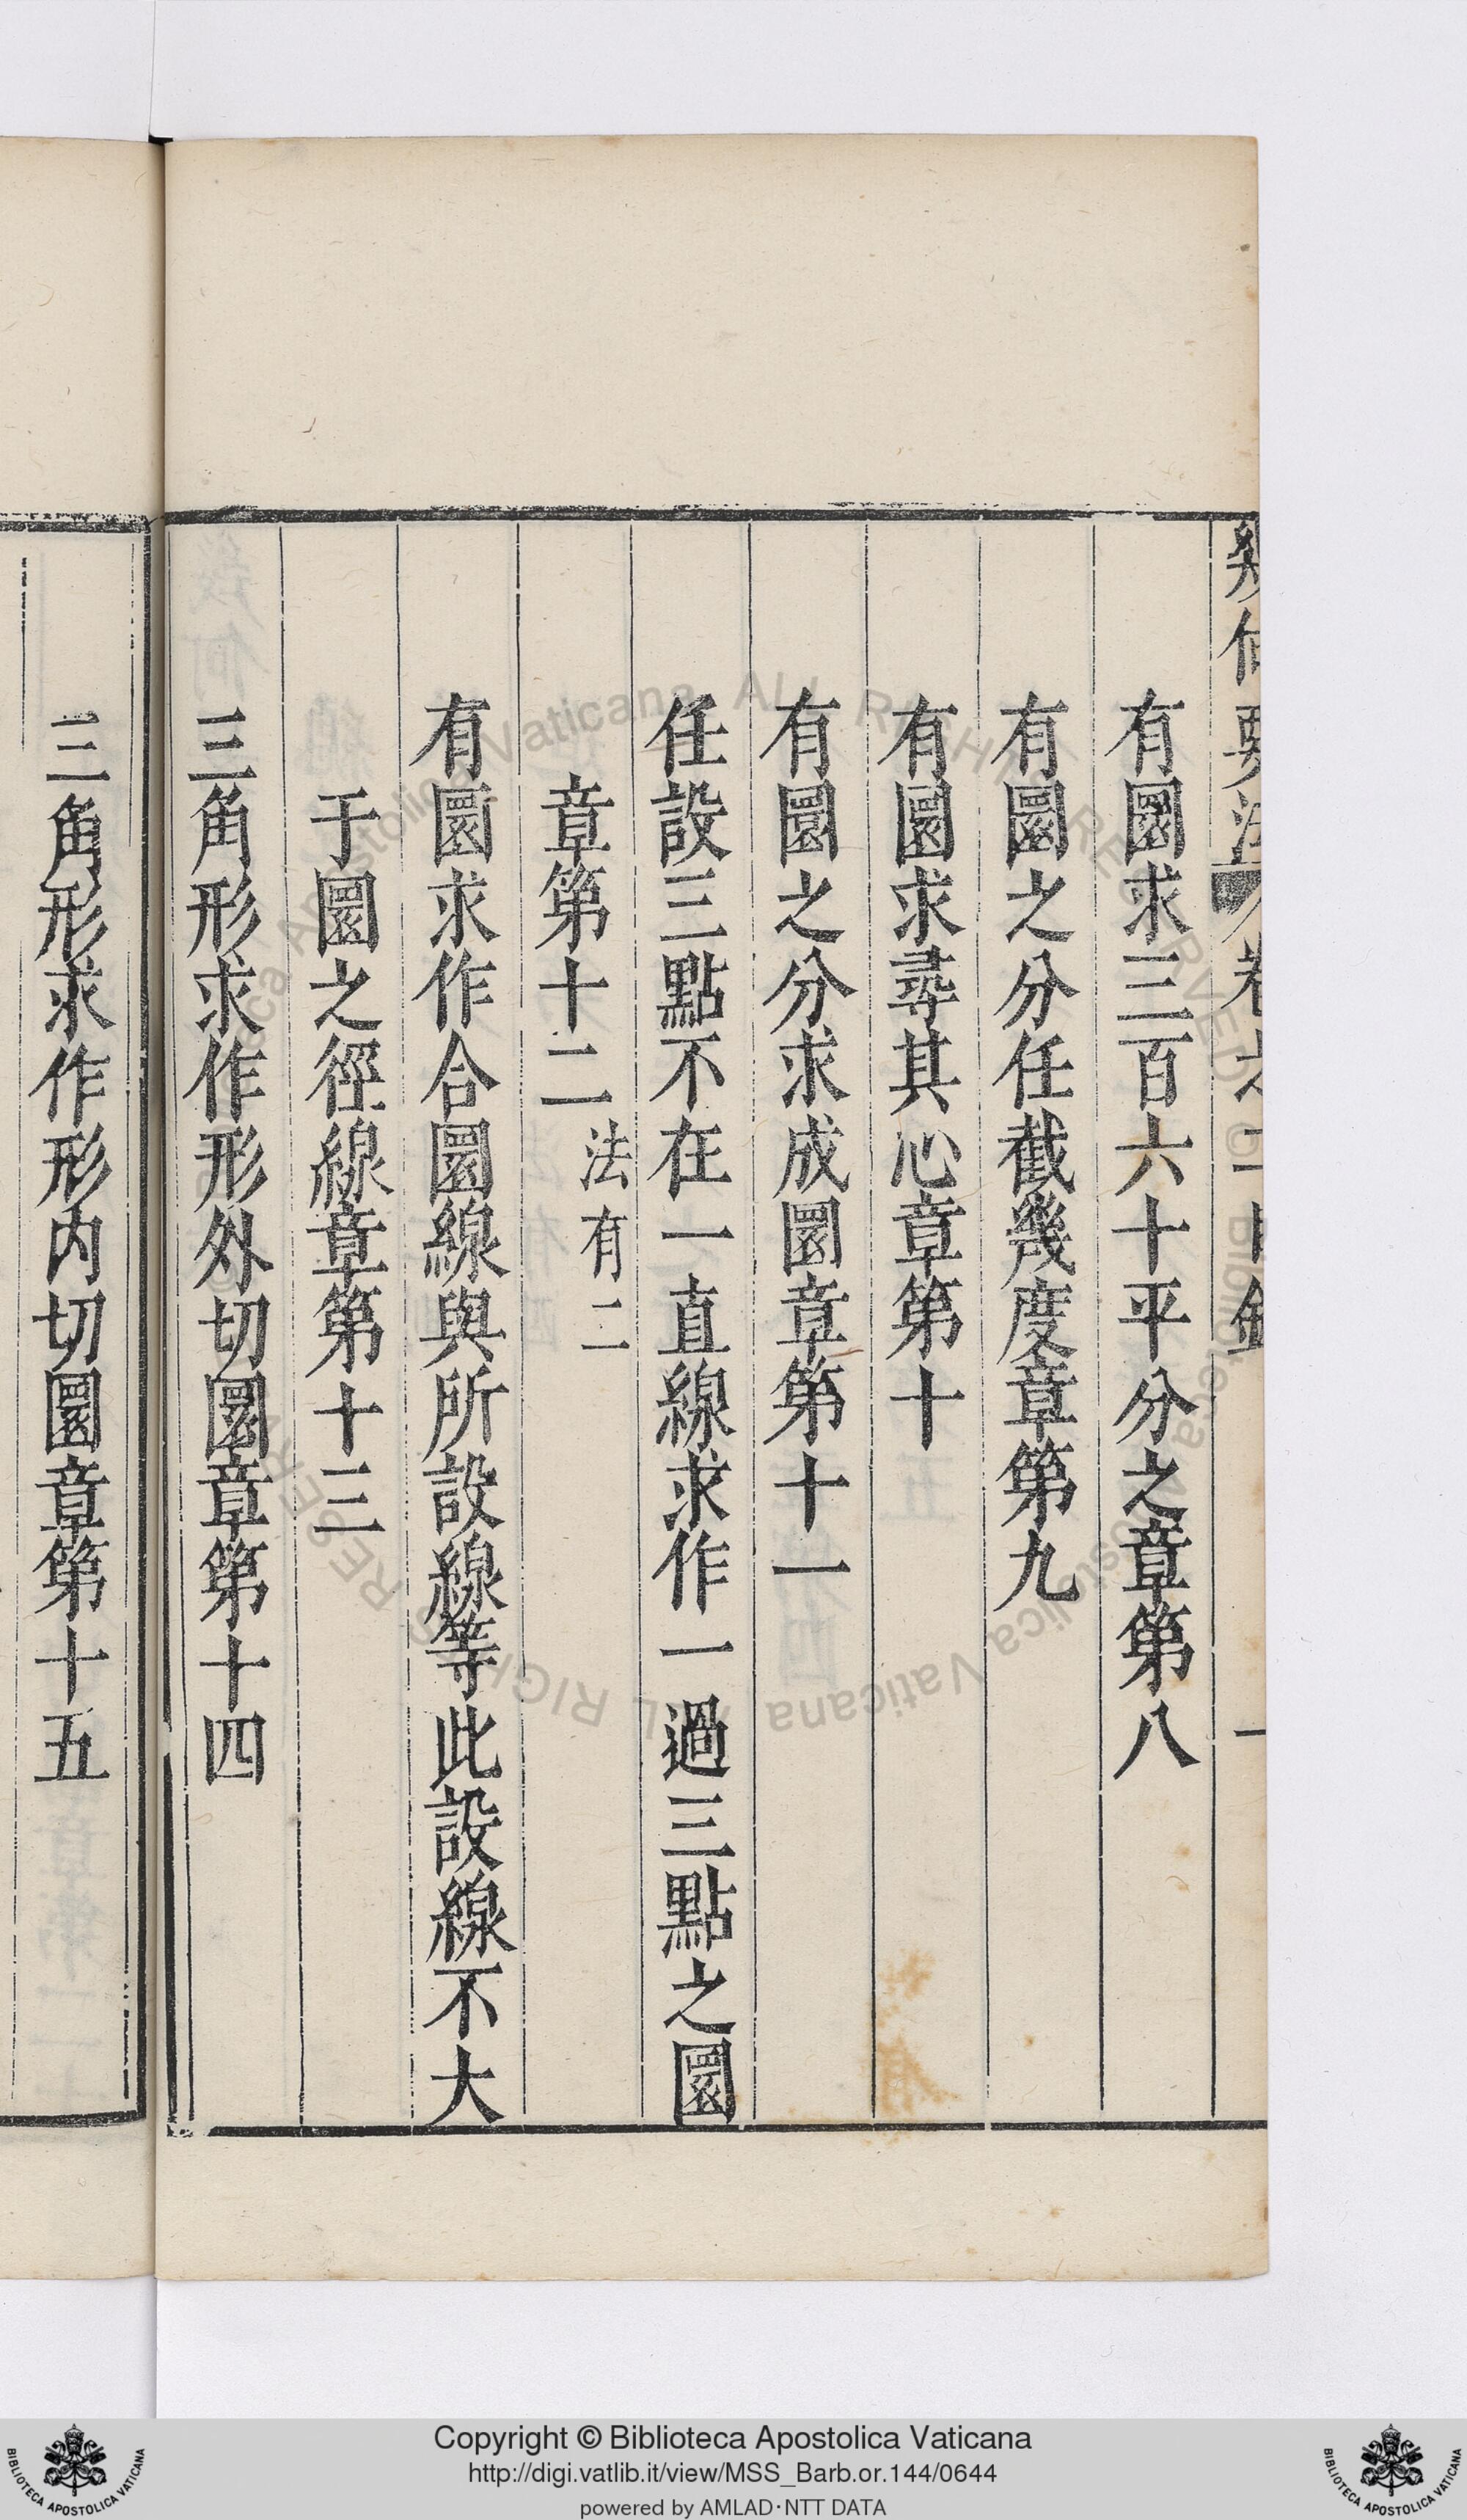 幾何要法 卷之二目錄 一
有圜求三百六十平分之章第八
有圜之分任截幾度章第九
有圜求尋其心章第十
有圜之分求成圜章第十一
任設三點不在一直線求作一過三點之圜
章第十二 法有二
有圜求作合圜線與所設線等此設線不大
于圜之徑線章第十三
三角形求作形外切圜章第十四
三角形求作形內切圜章第十五
Copyright © Biblioteca Apostolica Vaticana
http://digi.vatlib.it/view/MSS_Barb.or.144/0644
powered by AMLAD·NTT DATA
BIBLIOTECA APOSTOLICA VATICANA
BIBLIOTECA APOSTOLICA VATICANA